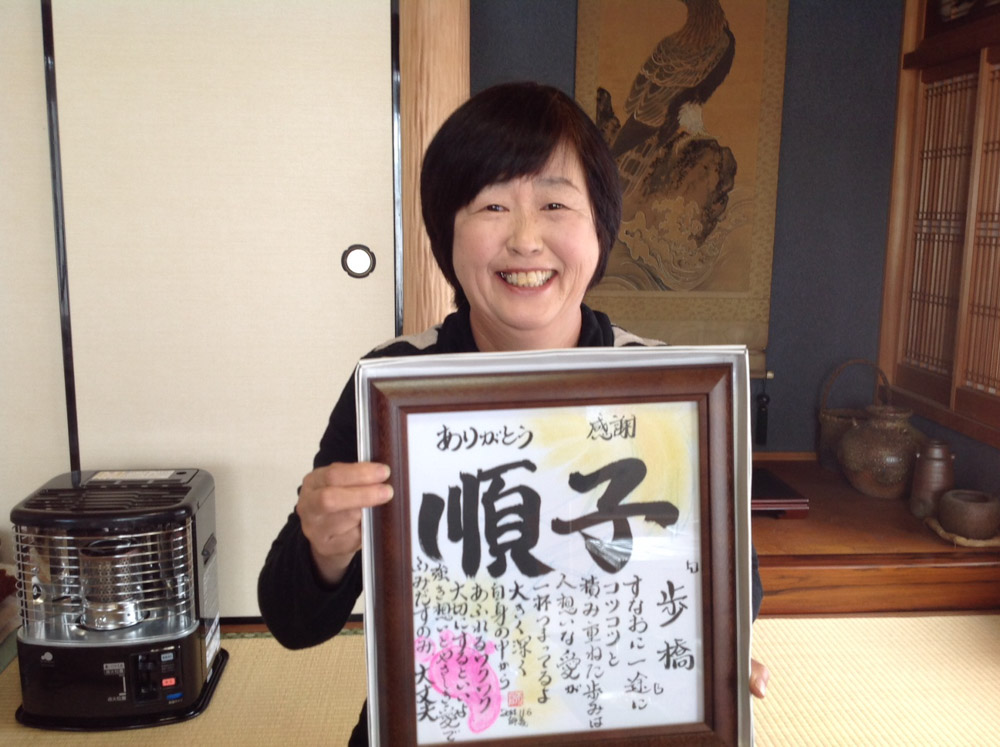 ありがとう 感謝
順子
歩橋
すなおに一途に
コツコツと
積み重ねた歩みは
人想いな愛が
一杯つまってるよ
大きく深く
自身の中から
あふれるワクワク
大切にするといいよ
強き想いとやさしい愛で
ふみだすのみ 大丈夫